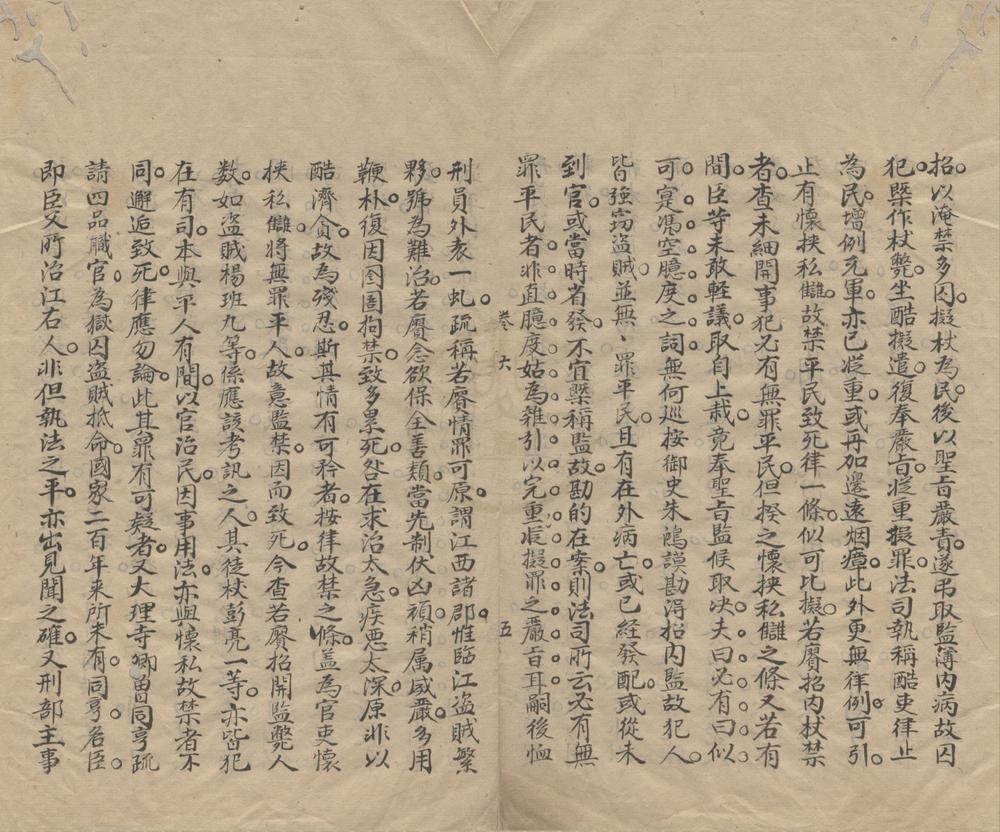 招以淹禁多囚擬杖為民後以聖旨嚴責遂弔取監簿内病故囚
犯槩作杖斃坐酷擬遣復奉嚴旨從重擬罪法司執稱酷吏律止
為民增例充軍亦已從重或再加邊遠烟瘴此外更無律例可引
止有懷挾私讎故禁平民致死律一條似可比擬若賡招内杖禁
者查未細開事犯兄有無罪平民但揆之懷挾私讎之條又若有
間臣等未敢輕議取自上裁竟奉聖旨監候取决夫曰必有曰似
可寔憑空臆度之詞無何巡按御史朱鴻謨勘淂招内監故犯人
皆強窃盜賊並無、罪平民且有在外病亡或已經發配或從未
到官或當時省發不宜槩稱監故勘的在案則法司所云必有無
罪平民者非直臆度姑為雜引以完重從擬罪之嚴旨耳嗣後恤
卷六 五
刑員外袁一虬疏稱若賡情罪可原謂江西諸郡惟臨江盜賊繁
夥號為難治若賡念欲保全善類當先制伏凶頑稍属威嚴多用
鞭朴復因囹圄拘禁致多累死咎在求治太急疾恶太深原非以
酷濟貪故為殘忍斯其情有可矜者按律故禁之條盖為官吏懷
挟私讎將無罪平人故意監禁因而致死今查若賡招開監斃人
数如盜賊楊班九等係應該考訊之人其徒杖彭亮一等亦皆犯
在有司本與平人有間以官治民因事用法亦與懷私故禁者不
同邂逅致死律應勿論此其罪有可疑者又大理寺卿曾同亨疏
請四品職官為嶽囚盜賊抵命國家二百年来所未有同亨名臣
即臣父所治江右人非但執法之平亦出見聞之確又刑部主事